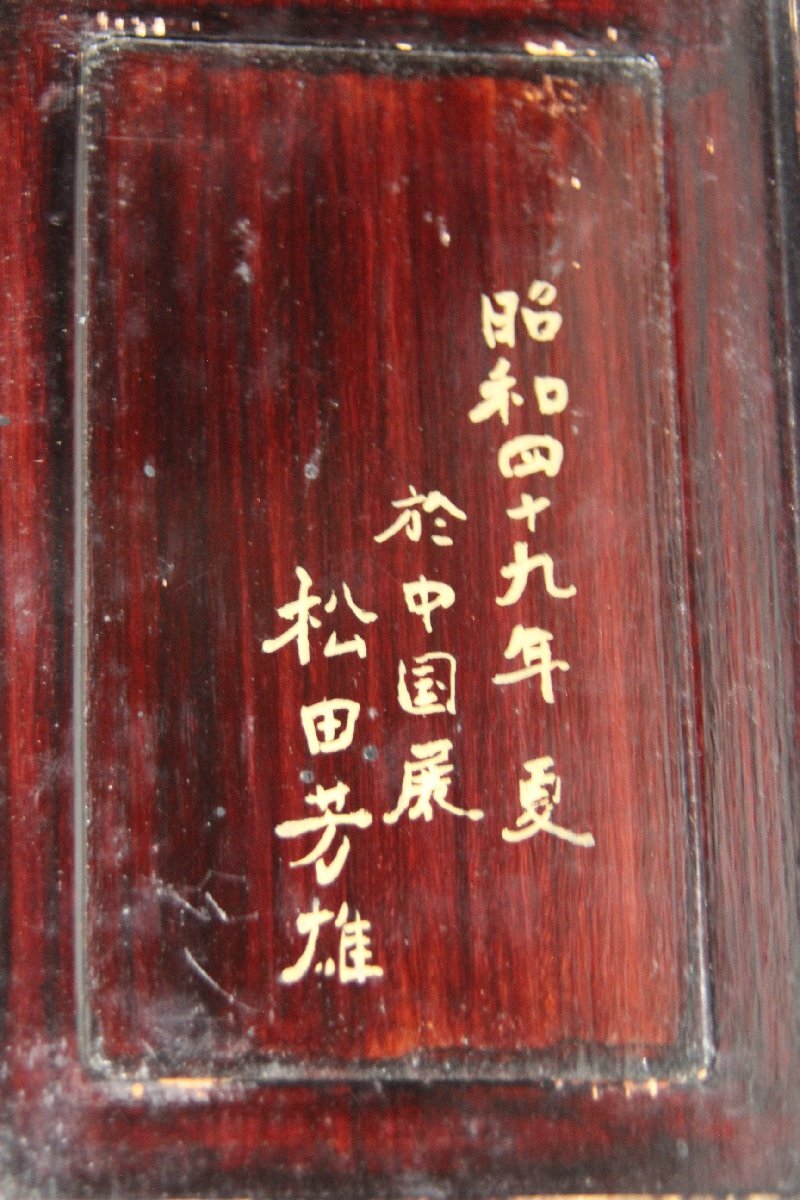 昭和四十九年 夏
於中国展
松田芳雄